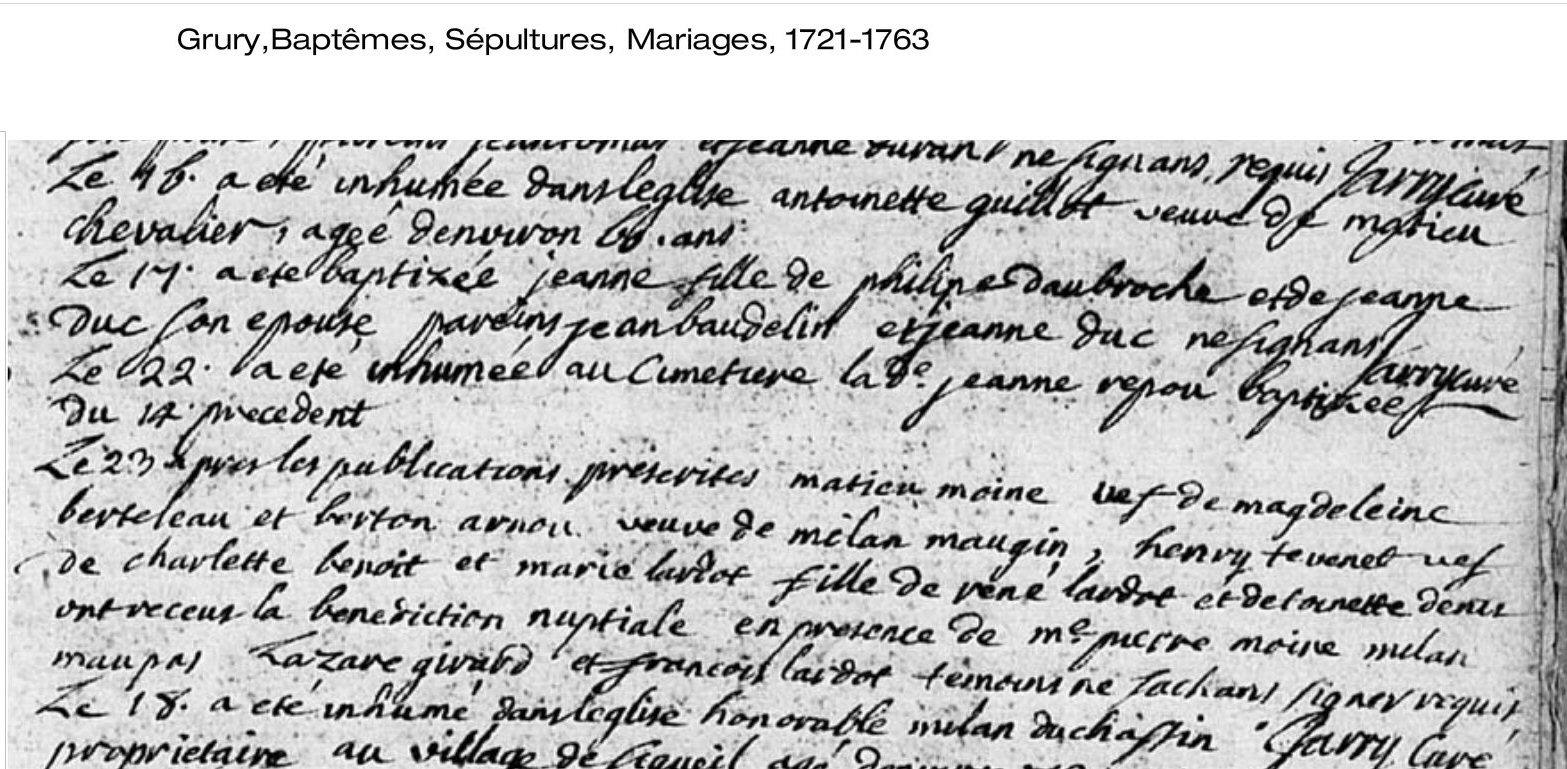 Grury,Baptêmes, Sépultures, Mariages, 1721-1763
et jeanne durant ne signans, requis Jarry curé
Le 16. a eté inhumée dans leglise antoinette guillot veuve de matieu
chevalier, ageé denviron 60. ans
Le 17. a eté baptizée jeanne fille de philipe daubroche et de jeanne
duc son epouse pareins jean baudelin et jeanne duc ne signans Jarry curé
Le 22. a eté inhumée au Cimetiere la de. jeanne repou baptizée
du 14 precedent
Le 23 apres les publications prescrites matieu moine vef de magdeleine
berteleau et berton arnou veuve de milan maugin, henry tevenet vef
de charlette benoit et marie lardot fille de rené lardot et de toinette denis
ont receus la benediction nuptiale en presence de me pierre moine milan
maupas Lazare girard et francois lardot temoins ne sachans signer requis
Le 18. a eté inhumé dans leglise honorable milan duchassin Jarry Curé
proprietaire au village de agé